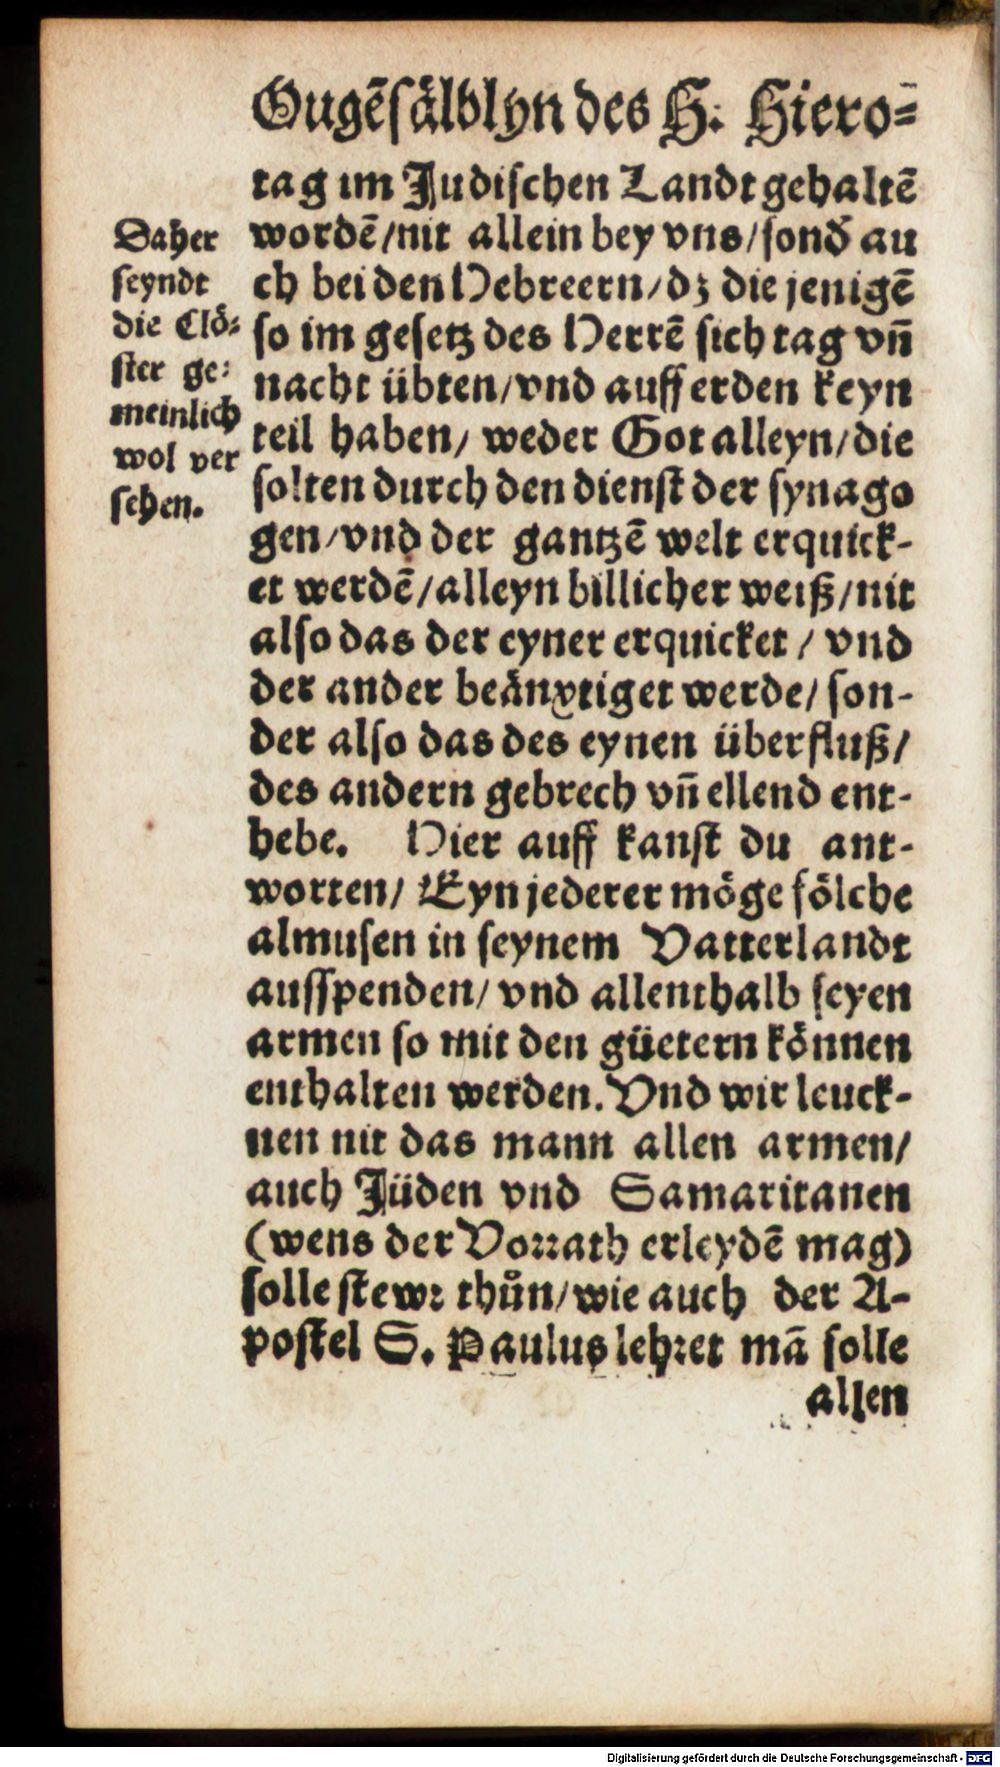 Ougēsälblyn des H. Hiero-
tag im Judischen Landt gehaltē
wordē/nit allein bey vns/sonđ au
ch bei den Hebreern/dz die jenigē
so im gesetz des Herrē sich tag vñ
nacht übten/vnd auff erden keyn
teil haben/ weder Got alleyn/die
solten durch den dienst der synago
gen/vnd der gantzē welt erquick-
et werdē/alleyn billicher weiß/nit
also das der eyner erquicket / vnd
der ander beänxtiget werde/ son-
der also das des eynen überfluß/
des andern gebrech vñ ellend ent-
hebe. Hier auff kanst du ant-
worten/ Eyn jederer möge sölche
almusen in seynem Vatterlandt
ausspenden/ vnd allenthalb seyen
armen so mit den güetern können
enthalten werden. Vnd wir leuck-
nen nit das mann allen armen/
auch Jüden vnd Samaritanen
(wens der Vorrath erleydē mag)
solle stewr thůn/wie auch der A-
postel S. Paulus lehret mā solle
allen
Daher
seyndt
die Clö-
ster ge-
meinlich
wol ver
sehen.
Digitalisierung gefördert durch die Deutsche Forschungsgemeinschaft - DFG